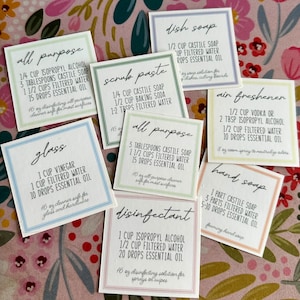 dish soap
1/2 CUP CASTILE SOAP
1/2 CUP FILTERED WATER
DROPS ESSENTIAL OIL
all purpose
1/4 CUP ISOPROPYL ALCOHOL
TABLESPOONS CASTILE SOAP
CUPS FILTERED WATER
15 DROPS ESSENTIAL OIL
scrub paste
1/4 CUP CASTILE SOAP
1/2 CUP BAKING SODA
FILTERED WATER
DROPS ESSENTIAL OIL
air freshener
1/2 CUP VODKA OR
2 TBSP ISOPROPYL ALCOHOL
1/2 CUP FILTERED WATER
DROPS ESSENTIAL OIL
all purpose
3 TABLESPOONS CASTILE SOAP
1/2 CUPS FILTERED WATER
15 DROPS ESSENTIAL OIL
glass
1 CUP VINEGAR
1 CUP FILTERED WATER
10 DROPS ESSENTIAL OIL
hand soap
1 PART CASTILE SOAP
PARTS FILTERED WATER
DROPS ESSENTIAL OIL
foaming hand soap
disinfectant
1 CUP ISOPROPYL ALCOHOL
1/2 CUP FILTERED WATER
20 DROPS ESSENTIAL OIL
disinfecting solution for
sprays or wipes